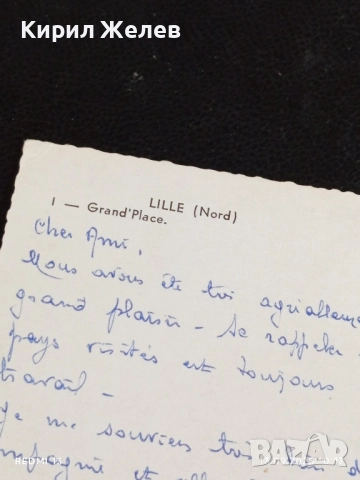 Кирил Желев
LILLE (Nord)
1 — Grand'Place.
Cher Ami,
Nous avons été
grand plaisir — se rappeler
pays visités est toujours
travail —
Je me souviens très bien d
et
BAZAR